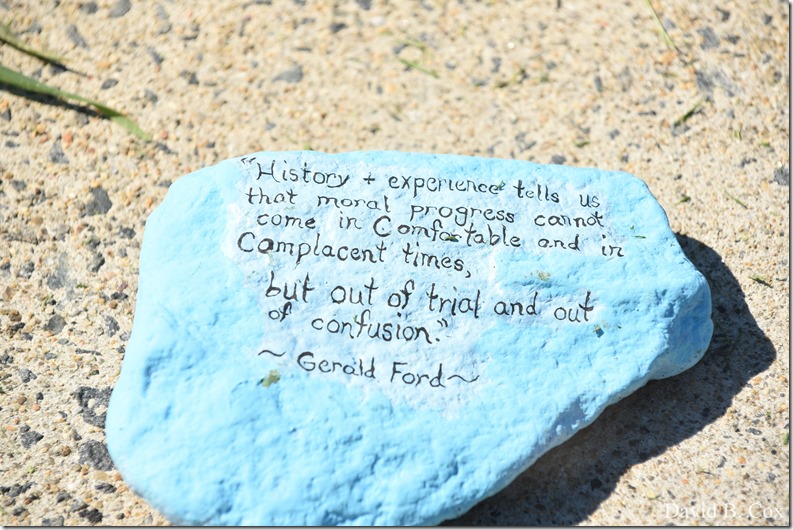 "History + experience tells us
that moral progress cannot
come in Comfortable and in
Complacent times,
but out of trial and out
of confusion."
~ Gerald Ford ~
David B. Cox